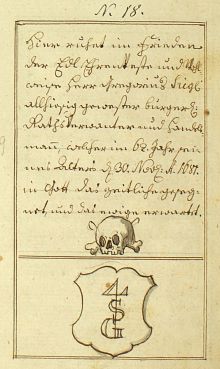 N. 18.
Hier ruhet im Frieden
der Edl Ehrenveste und Wohl
weise Herr Gregorius Siegl
allhiesig gewester bürgerl:
Rathsverwanter und Handels
mañ, welcher im 62. Jahr sei-
nes Alters d. 30. Nov: A. 1687.
in Gott das zeitliche geseg-
net, und das ewige erwartet.
4
S
G